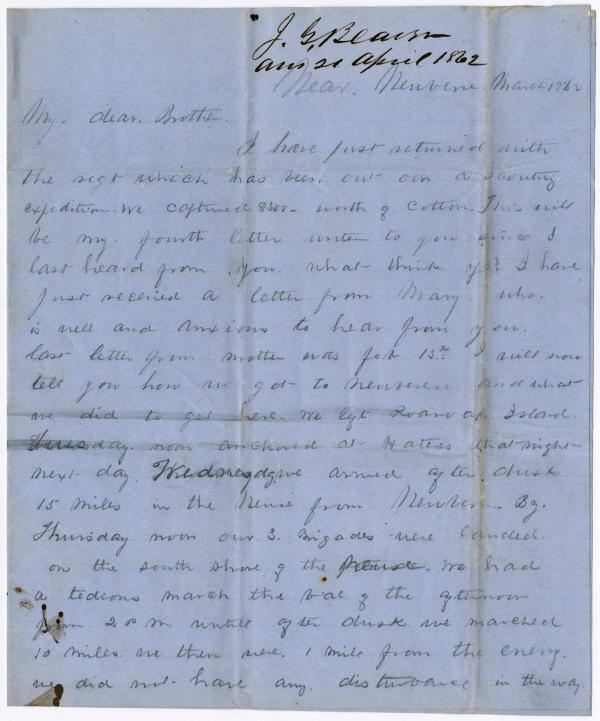 J. G. Beacon
ans 21 April 1862
Near. Neuverne. March 1862
My. dear. Brother.
I have just returned with
the regt which has been out own a scouting
expedition. we captured $300- worth of cotton. This will
be my. fourth letter writen to you since I
last heard from you. what think ye? I have
just received a letter from Mary who.
is well and anxious to hear from you.
last letter from mother was feb. 15th. I will now
tell you how we got to neuveren and what
we did to get here. We left Roanoak Island.
Tuesday. noon anchored at Hatteras that night
next day. Wednesday we arrived after dusk
15 miles in the Neuse from Newbern. By.
Thursday noon our 3. Brigades were landed.
on the south shore of the Neuse. We had
a tedious march the bal of the afternoon
from 2 o m. untill after dusk we marched
10 miles we then were. 1 mile from the enemy.
we did not have any. disturbance in the way